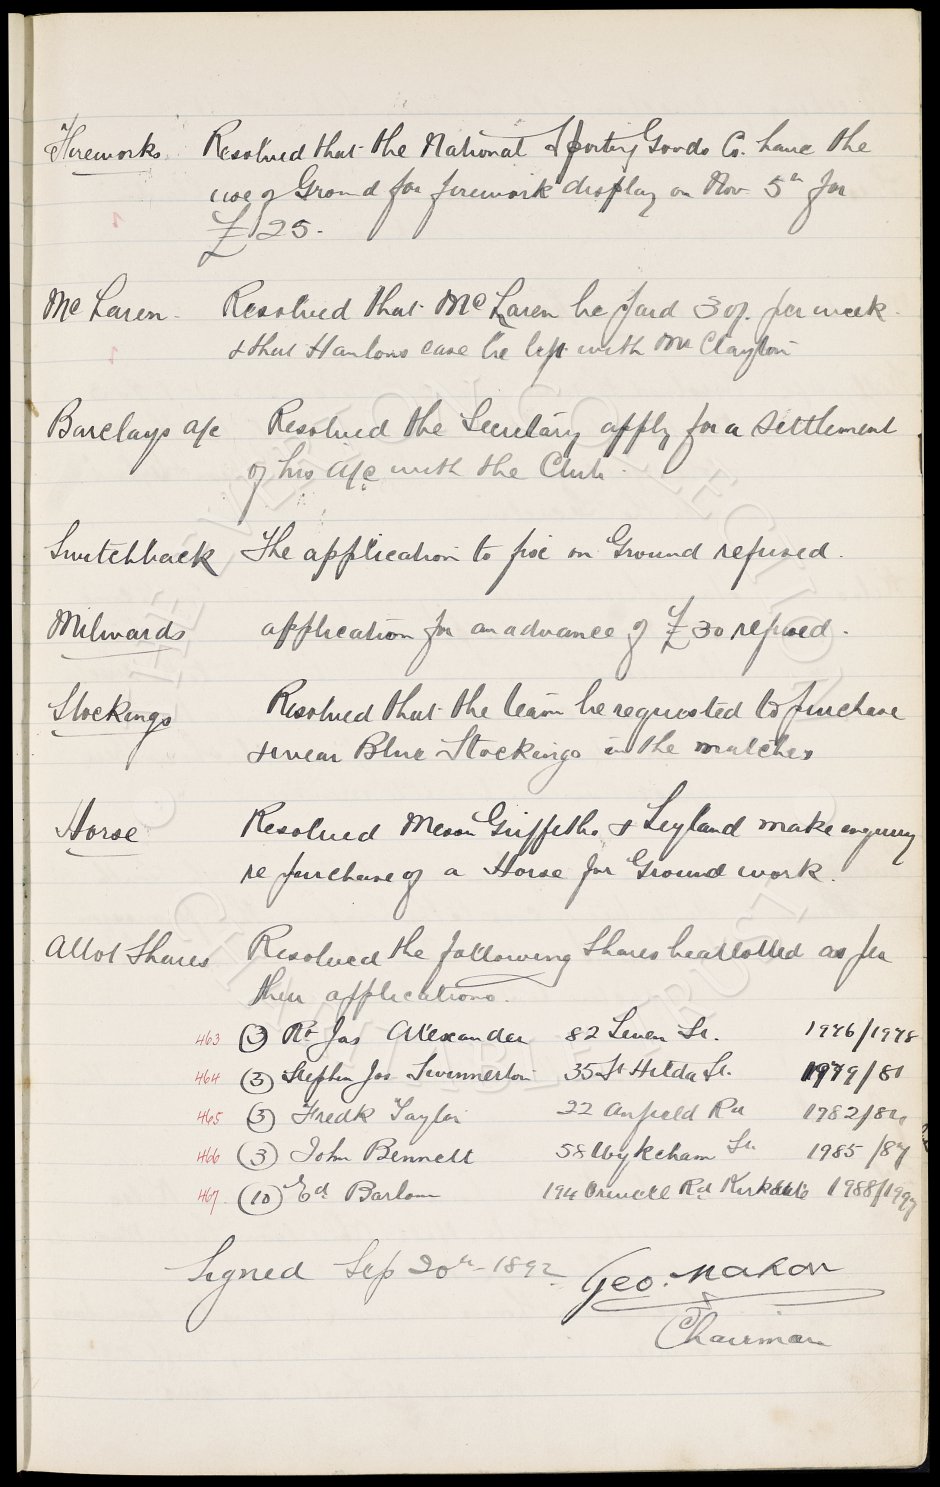 Fireworks Resolved that the National Sporting Goods Co. have the
use of Ground for firework display on Nov 5th for
£25.
McLaren. Resolved that McLaren be paid 30/. per week.
& that Hanlons case be left with Mr Clayton
Barclays a/c Resolved the Secretary apply for a settlement
of his a/c with the Club.
Switchback The application to fix on Ground refused.
Milwards application for an advance of £30 refused.
Stockings Resolved that the team be requested to purchase
& wear Blue Stockings in the matches
Horse Resolved Messrs Griffiths & Leyland make enquiry
re purchase of a Horse for Ground work.
Allot Shares Resolved the following Shares be allotted as per
their applications.
463 (3) Rt Jas Alexander 82 Leven St. 1976/1978
464 (3) Stephen Jas Swinnerton 35 St Hilda St. 1979/81
465 (3) Fredk Taylor 22 Anfield Rd 1982/84
466 (3) John Bennett 58 Wykeham St. 1985/87
467. (10) Ed. Barlow 194 Orwell Rd Kirkdale 1988/1997
Signed Sep 20th - 1892 Geo. Mahon
Chairman
THE EVERTON COLLECTION
CHARITABLE TRUST